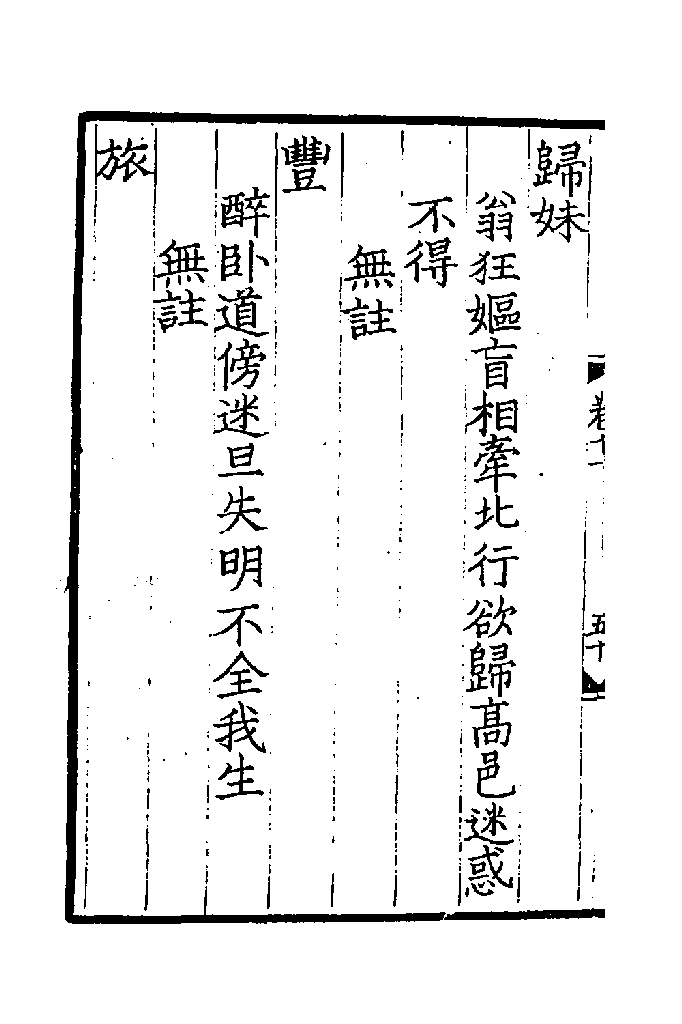 歸妹
翁狂嫗盲相牽北行欲歸高邑迷惑
不得
無註
豐
醉卧道傍迷旦失明不全我生
無註
旅
卷十一
五十